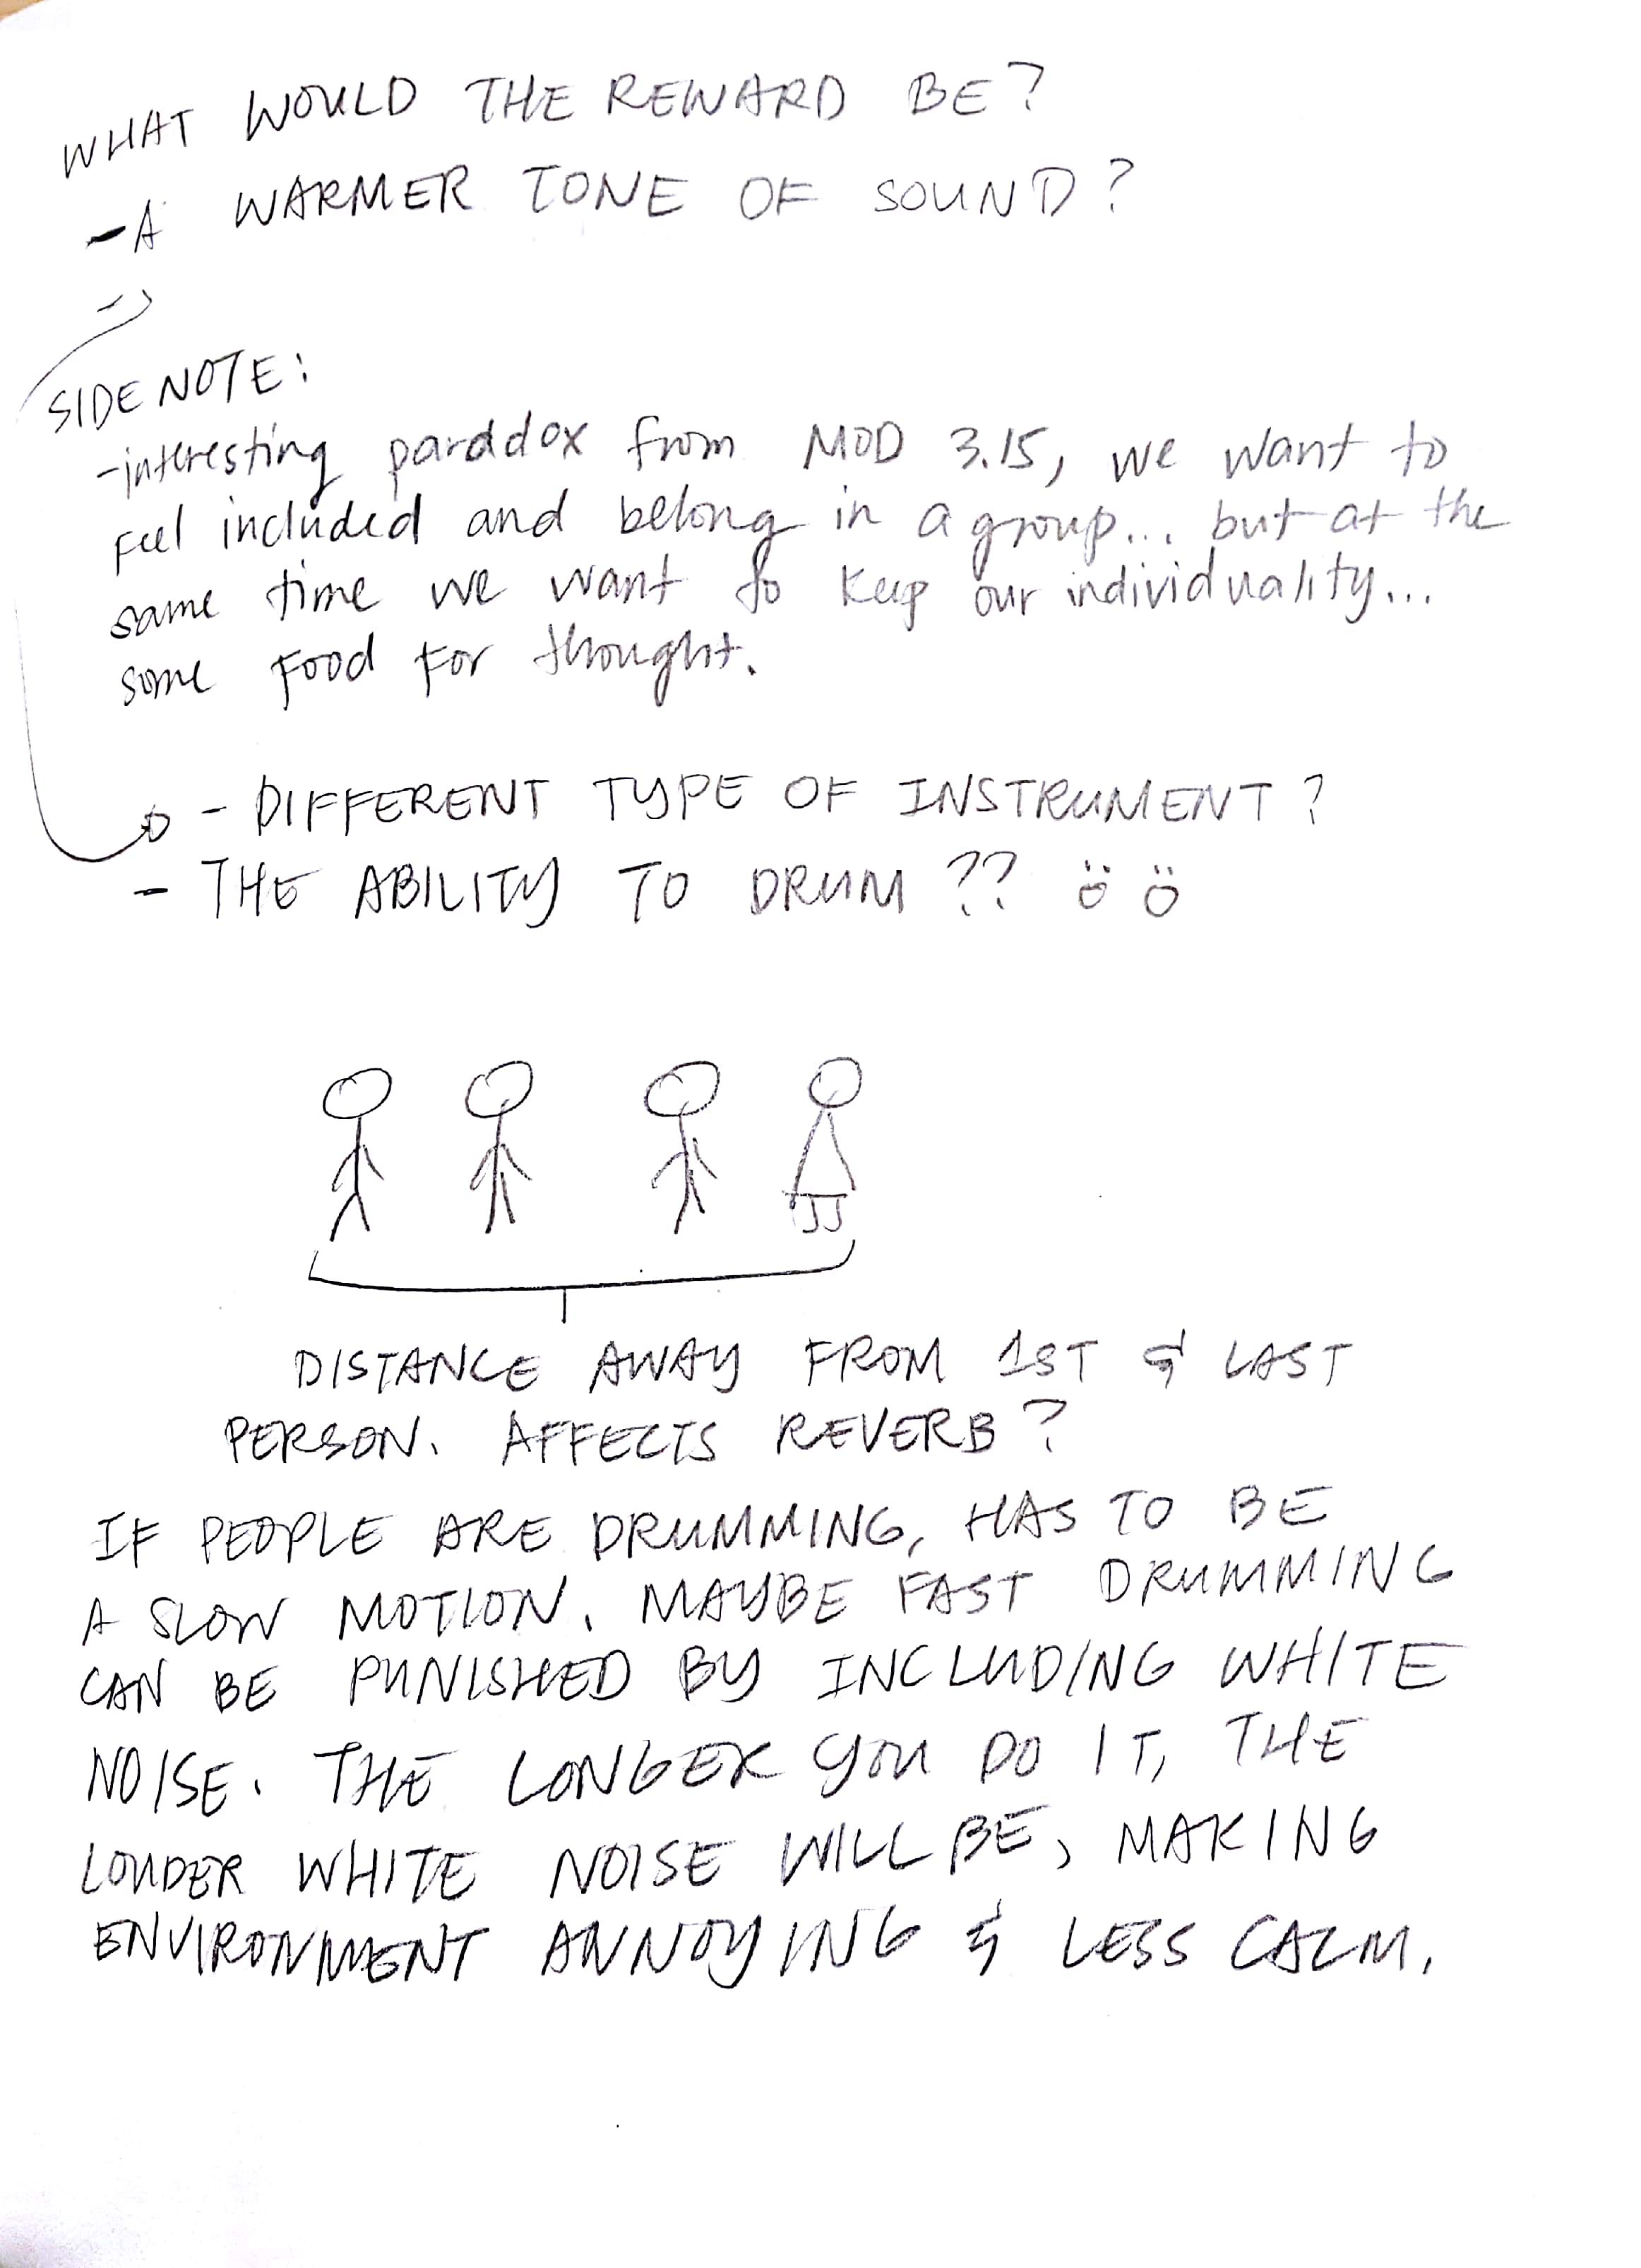 WHAT WOULD THE REWARD BE?
- A WARMER TONE OF SOUND?
SIDENOTE:
- interesting paradox from MOD 3.15, we want to
feel included and belong in a group... but at the
same time we want to keep our individuality...
some food for thought.
- DIFFERENT TYPE OF INSTRUMENT?
- THE ABILITY TO DRUM ??
DISTANCE AWAY FROM 1ST & LAST
PERSON. AFFECTS REVERB?
IF PEOPLE ARE DRUMMING, HAS TO BE
A SLOW MOTION. MAYBE FAST DRUMMING
CAN BE PUNISHED BY INCLUDING WHITE
NOISE. THE LONGER YOU DO IT, THE
LOUDER WHITE NOISE WILL BE, MAKING
ENVIRONMENT ANNOYING & LESS CALM.